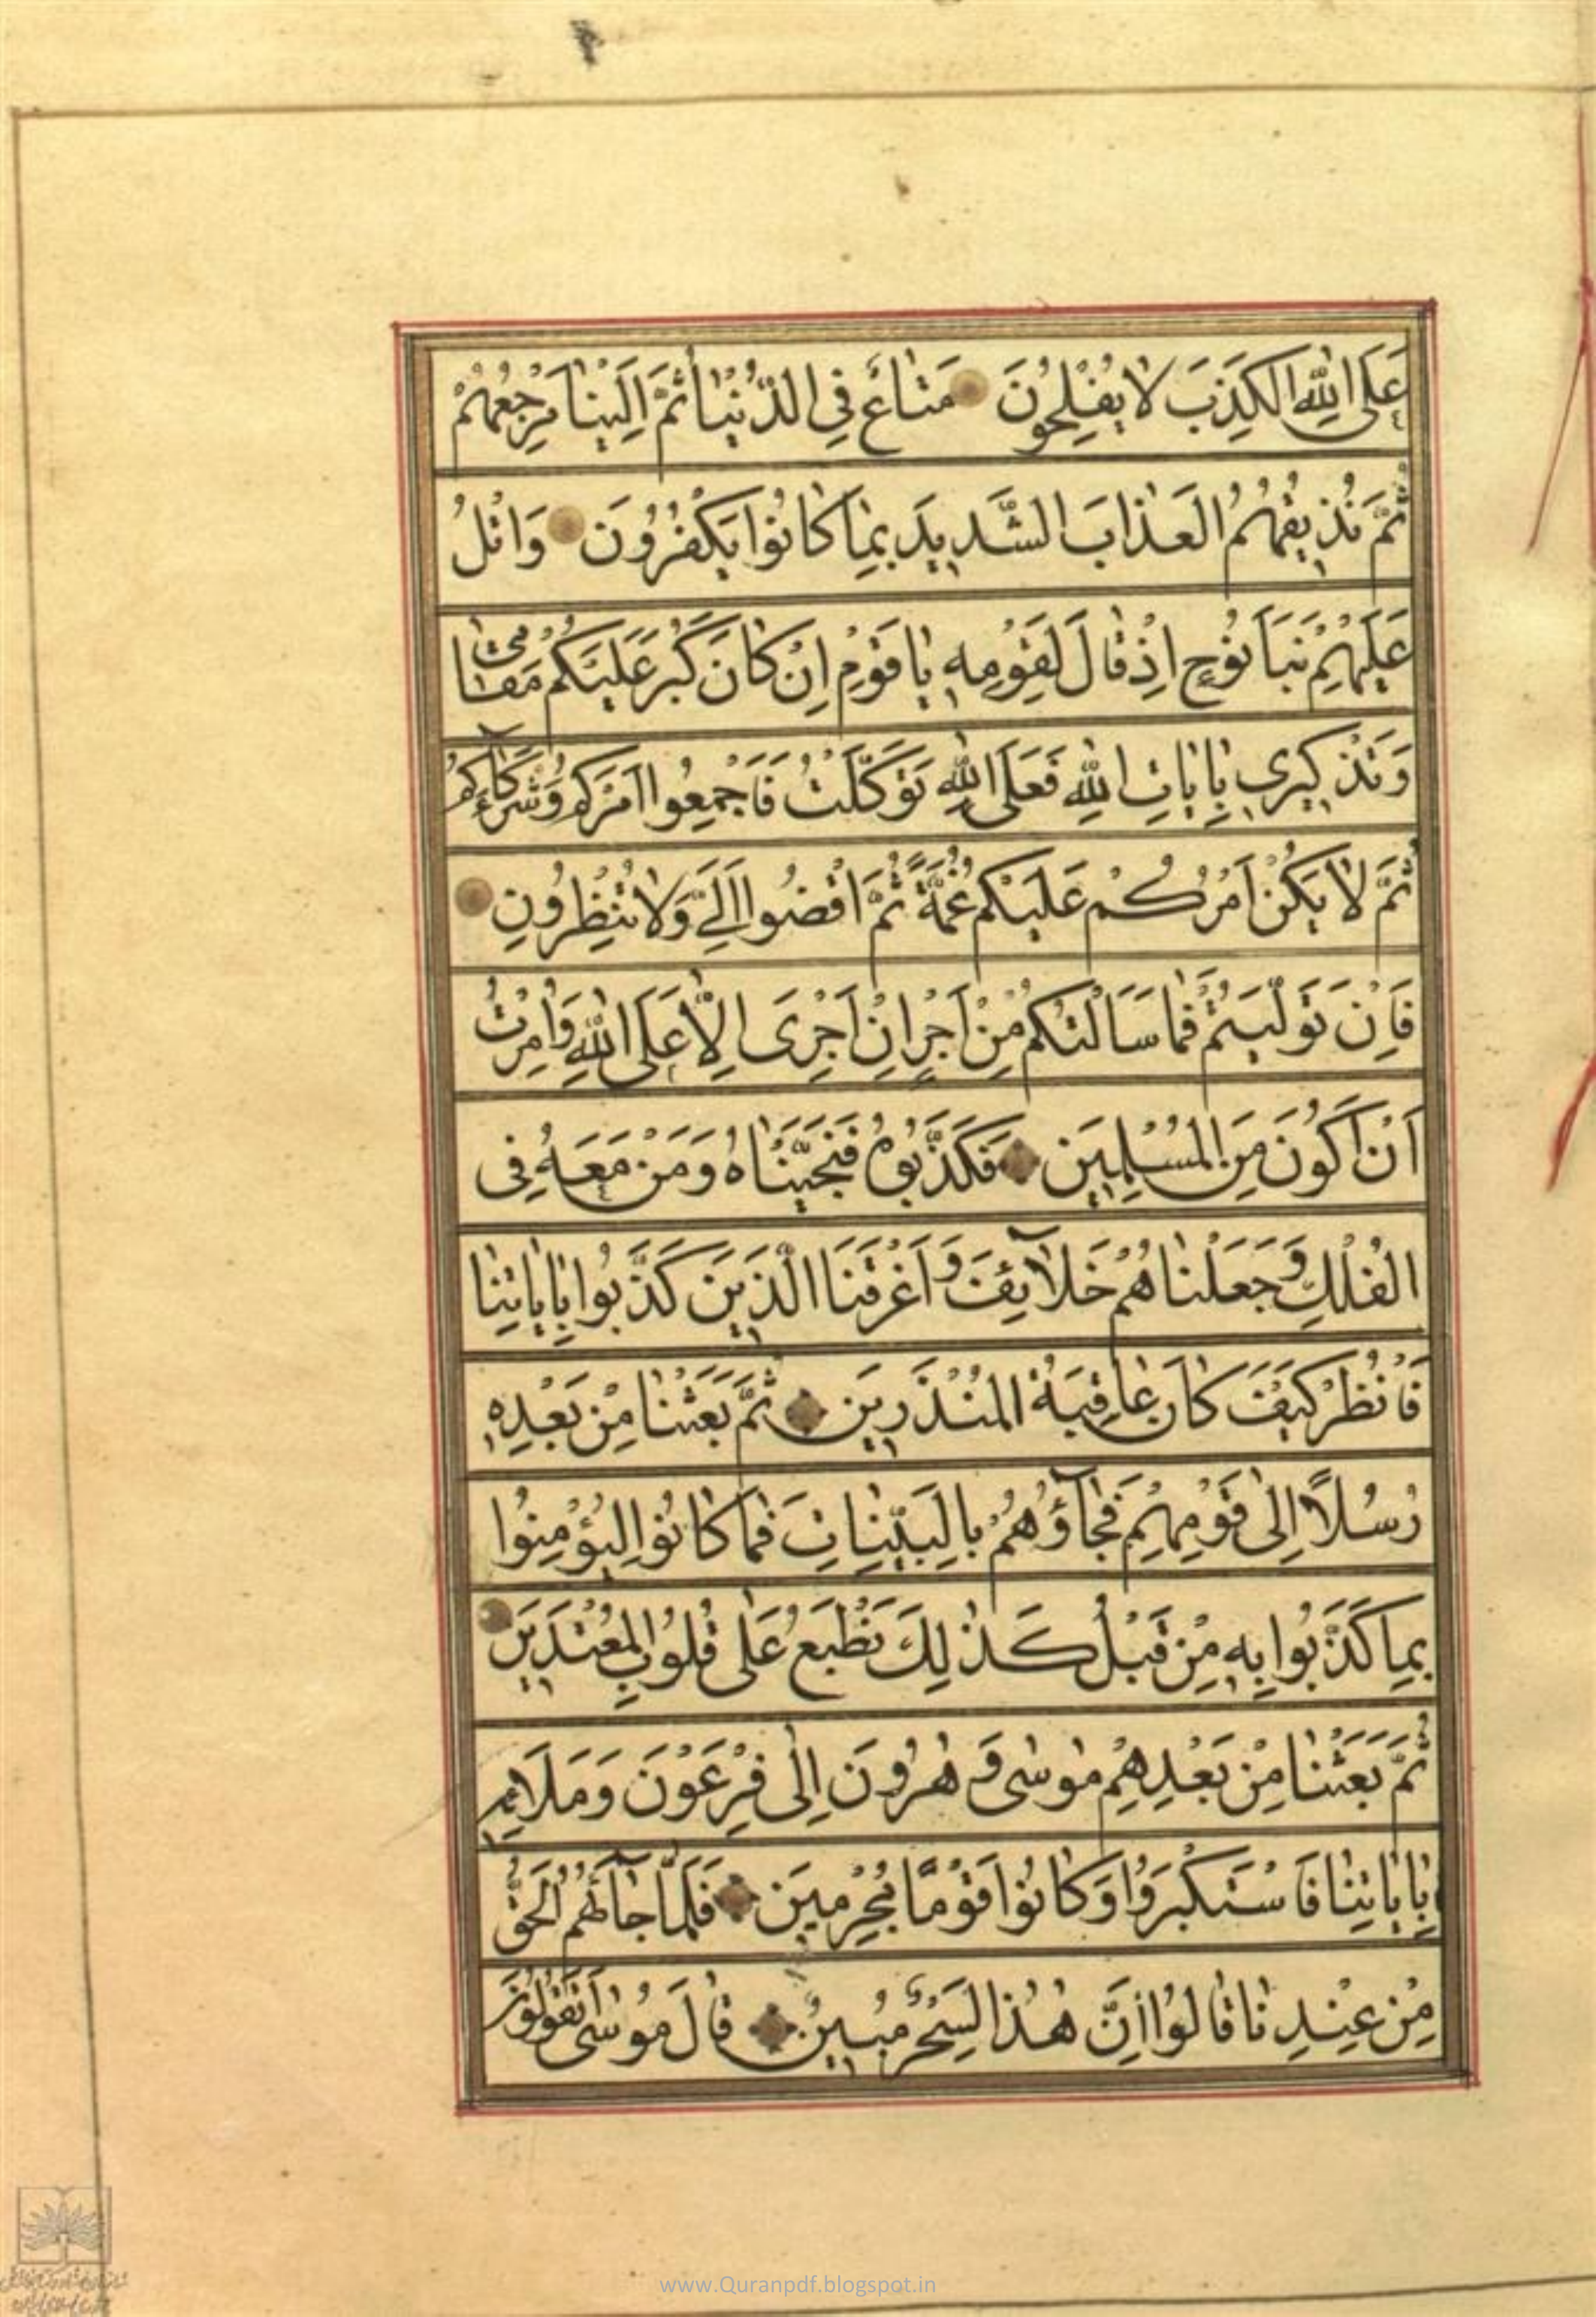 عَلَى اللّٰهِ الْكَذِبَ لَا يُفْلِحُونَ مَتَاعٌ فِي الدُّنْيَا ثُمَّ اِلَيْنَا مَرْجِعُهُمْ
ثُمَّ نُذِيقُهُمُ الْعَذَابَ الشَّدِيدَ بِمَا كَانُوا يَكْفُرُونَ وَاتْلُ
عَلَيْهِمْ نَبَاَ نُوحٍ اِذْ قَالَ لِقَوْمِهِ يَا قَوْمِ اِنْ كَانَ كَبُرَ عَلَيْكُمْ مَقَامِي
وَتَذْكِيرِي بِاٰيَاتِ اللّٰهِ فَعَلَى اللّٰهِ تَوَكَّلْتُ فَاَجْمِعُوا اَمْرَكُمْ وَشُرَكَآءَكُمْ
ثُمَّ لَا يَكُنْ اَمْرُكُمْ عَلَيْكُمْ غُمَّةً ثُمَّ اقْضُوا اِلَيَّ وَلَا تُنْظِرُونِ
فَاِنْ تَوَلَّيْتُمْ فَمَا سَاَلْتُكُمْ مِنْ اَجْرٍ اِنْ اَجْرِىَ اِلَّا عَلَى اللّٰهِ وَاُمِرْتُ
اَنْ اَكُونَ مِنَ الْمُسْلِمِينَ فَكَذَّبُوهُ فَنَجَّيْنَاهُ وَمَنْ مَعَهُ فِي
الْفُلْكِ وَجَعَلْنَاهُمْ خَلَآئِفَ وَاَغْرَقْنَا الَّذِينَ كَذَّبُوا بِاٰيَاتِنَا
فَانْظُرْ كَيْفَ كَانَ عَاقِبَةُ الْمُنْذَرِينَ ثُمَّ بَعَثْنَا مِنْ بَعْدِهِ
رُسُلًا اِلٰى قَوْمِهِمْ فَجَآؤُهُمْ بِالْبَيِّنَاتِ فَمَا كَانُوا لِيُؤْمِنُوا
بِمَا كَذَّبُوا بِهِ مِنْ قَبْلُ كَذٰلِكَ نَطْبَعُ عَلٰى قُلُوبِ الْمُعْتَدِينَ
ثُمَّ بَعَثْنَا مِنْ بَعْدِهِمْ مُوسٰى وَهٰرُونَ اِلٰى فِرْعَوْنَ وَمَلَائِهِ
بِاٰيَاتِنَا فَاسْتَكْبَرُوا وَكَانُوا قَوْمًا مُجْرِمِينَ فَلَمَّا جَآءَهُمُ الْحَقُّ
مِنْ عِنْدِنَا قَالُوا اِنَّ هٰذَا لَسِحْرٌ مُبِينٌ قَالَ مُوسٰى اَتَقُولُونَ
www.Quranpdf.blogspot.in